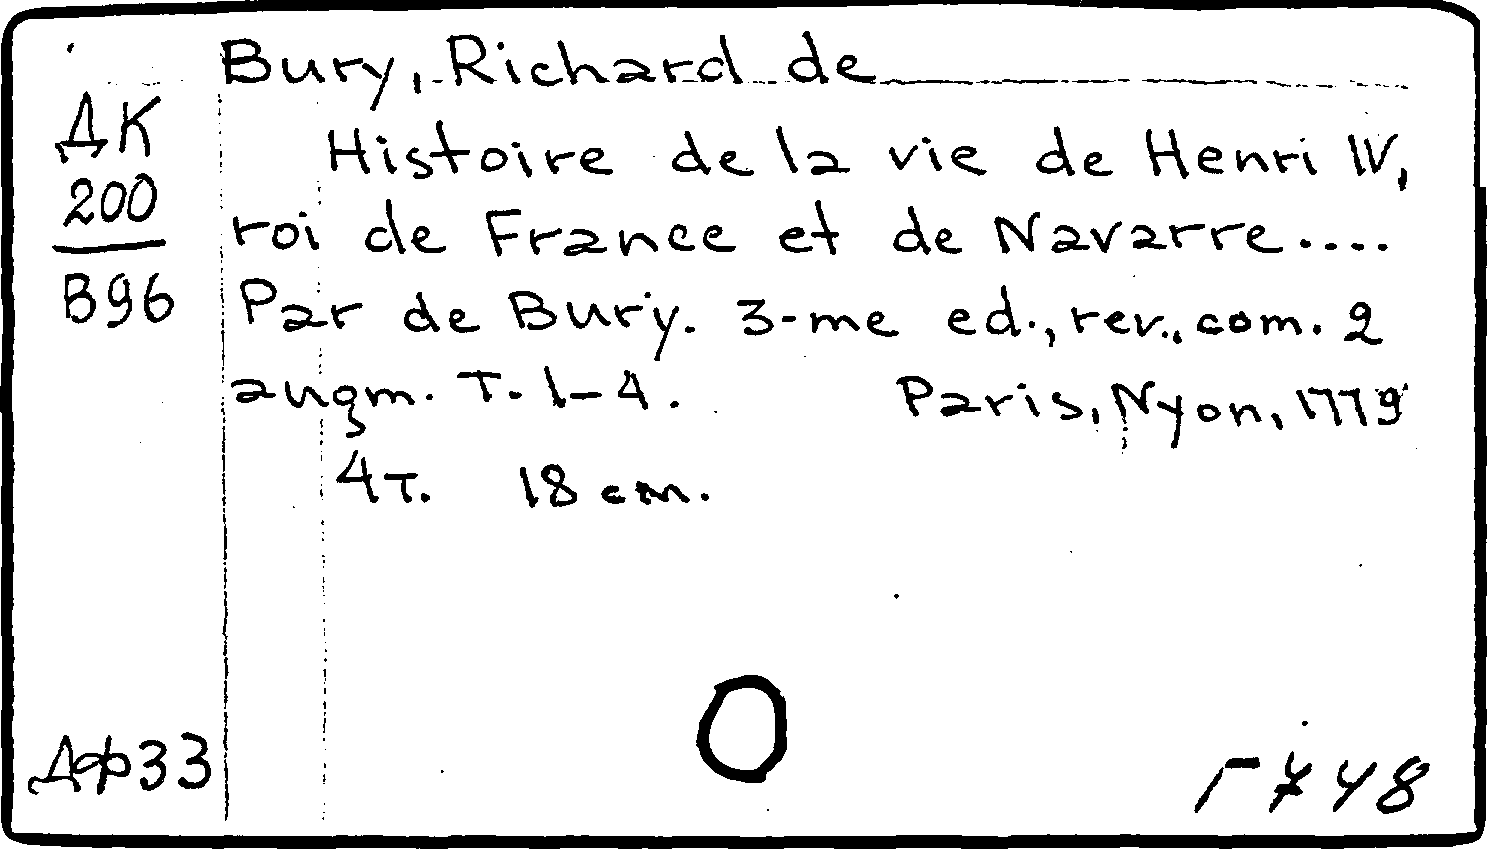 Bury, Richard de
ДК
200
В96
Histoire de la vie de Henri IV,
roi de France et de Navarre....
Par de Bury. 3-me ed., rev., com. 2
augm. T. 1-4. Paris, Nyon, 1779
4 т. 18 cm.
ДФ33
Г 748